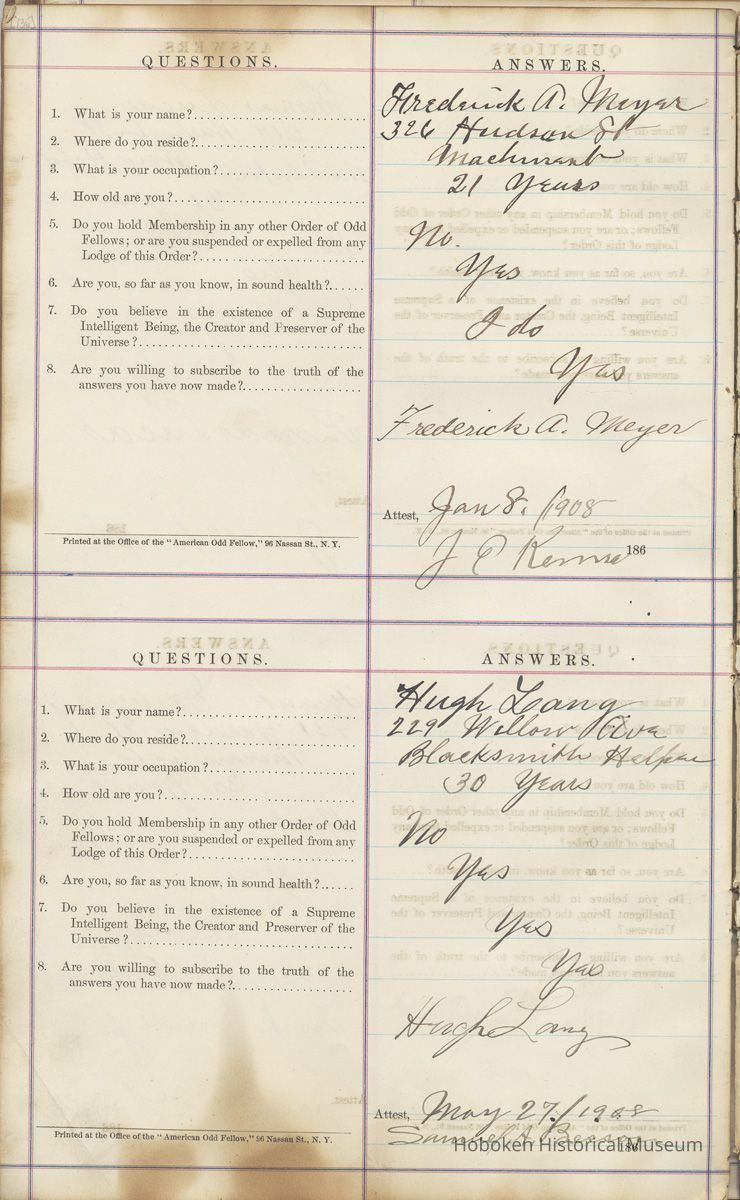 QUESTIONS.
ANSWERS.
1. What is your name?
Frederick A. Meyer
2. Where do you reside?
326 Hudson St
3. What is your occupation?
4. How old are you?
21 Years
5. Do you hold Membership in any other Order of Odd
Fellows; or are you suspended or expelled from any
Lodge of this Order?
No.
6. Are you, so far as you know, in sound health?
Yes
7. Do you believe in the existence of a Supreme
Intelligent Being, the Creator and Preserver of the
Universe?
I do
8. Are you willing to subscribe to the truth of the
answers you have now made?
Yes
Frederick A. Meyer
Attest, Jan 8. /1908
J
186
Printed at the Office of the "American Odd Fellow," 96 Nassau St., N. Y.
QUESTIONS.
ANSWERS.
1. What is your name?
Hugh Lang
2. Where do you reside?
229 Willow Ave
3. What is your occupation?
Blacksmith Helper
4. How old are you?
30 Years
5. Do you hold Membership in any other Order of Odd
Fellows; or are you suspended or expelled from any
Lodge of this Order?
No
6. Are you, so far as you know, in sound health?
Yes
7. Do you believe in the existence of a Supreme
Intelligent Being, the Creator and Preserver of the
Universe?
Yes
8. Are you willing to subscribe to the truth of the
answers you have now made?
Yes
Hugh Lang
Attest, May 27/1908
Samuel
186
Printed at the Office of the "American Odd Fellow," 96 Nassau St., N. Y.
Hoboken Historical Museum